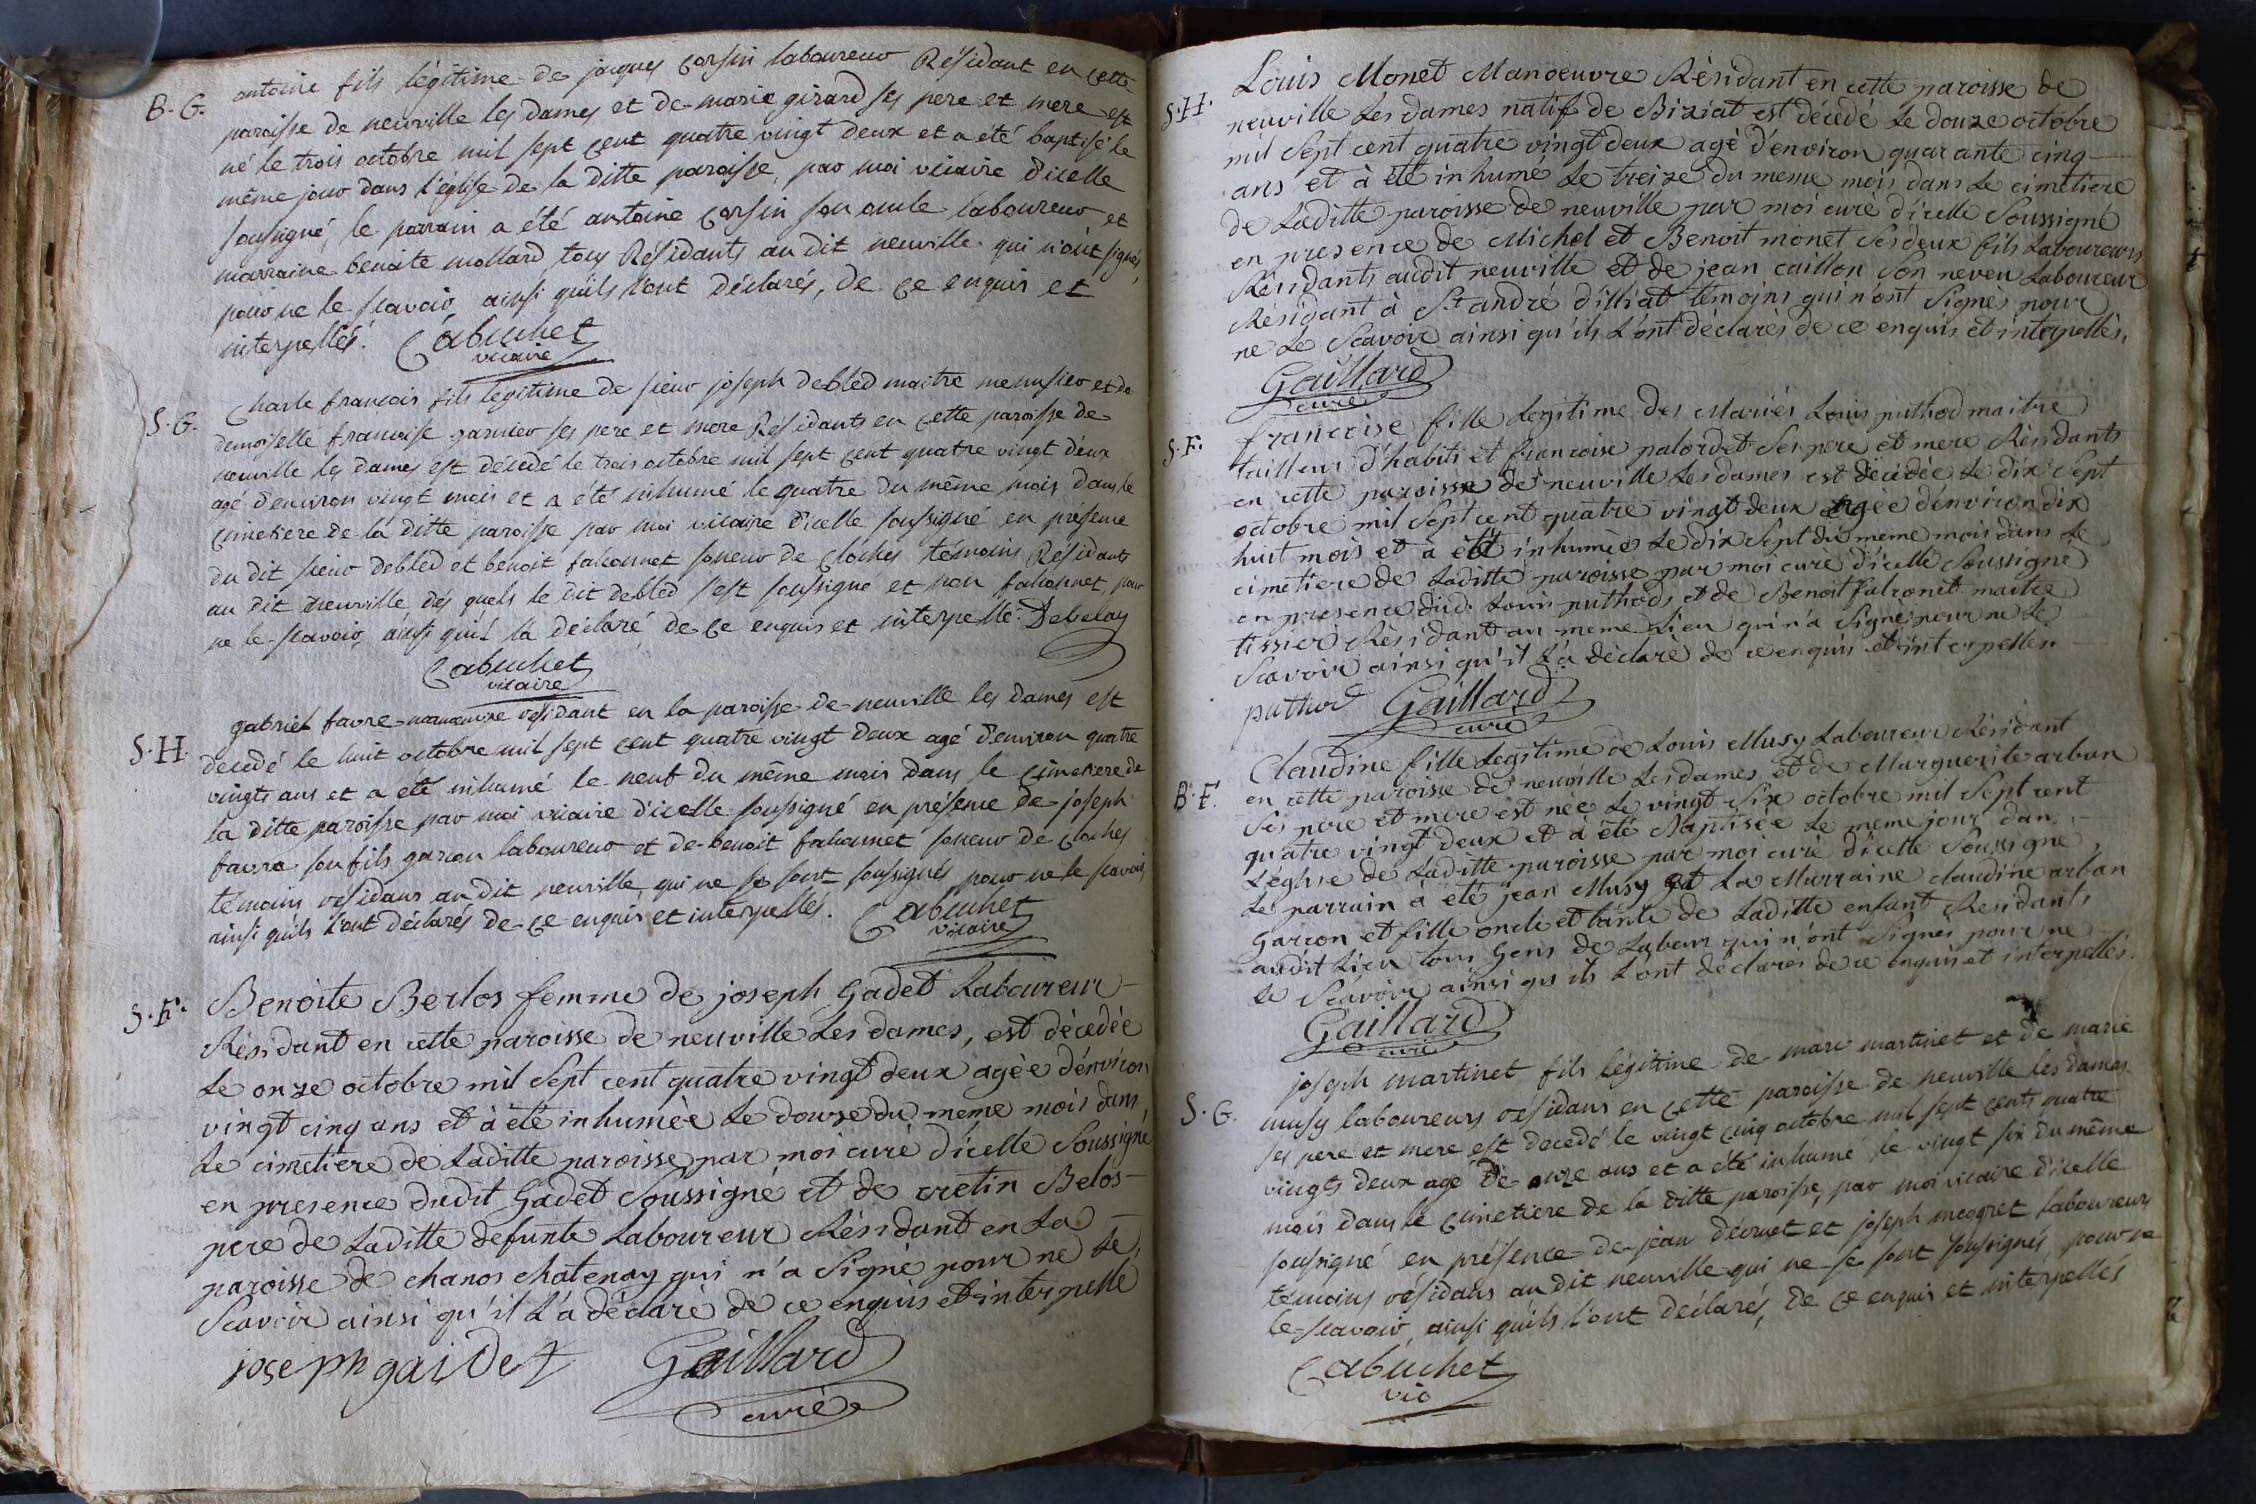 B. G.
antoine fils légitime de jacques corsin laboureur Résidant en cette
paroisse de neuville les dames et de marie girard ses pere et mere est
né le trois octobre mil sept cent quatre vingt deux et a été baptisé le
même jour dans l'église de la ditte paroisse, par moi vicaire d'icelle
soussigné, le parrain a été antoine corsin son oncle laboureur et
marraine benoite mollard tous Résidants au dit neuville qui n'ont signés,
pour ne le scavoir, ainsi quils l'ont déclarés, de ce enquis et
interpellés. Cabuchet
vicaire
S. G.
Charle francois fils légitime de sieur joseph debled maitre menusier et de
demoiselle francoise garnier ses pere et mere Résidants en cette paroisse de
neuville les dames est décedé le trois octobre mil sept cent quatre vingt deux
agé d'environ vingt mois et a été inhumé le quatre du même mois dans le
cimetiere de la ditte paroisse par moi vicaire d'icelle soussigné en presence
du dit sieur debled et benoit falconnet soneur de cloches témoins Résidants
au dit neuville des quels le dit debled s'est soussigné et non falconnet, pour
ne le scavoir, ainsi quil la déclaré de ce enquis et interpellé. Debelay
Cabuchet
vicaire
S. H.
gabriel favre manoeuvre résidant en la paroisse de neuville les dames est
decedé le huit octobre mil sept cent quatre vingt deux agé d'environ quatre
vingts ans et a été inhumé le neuf du même mois dans le cimetiere de
la ditte paroisse par moi vicaire d'icelle soussigné en présence de joseph
favre son fils garcon laboureur et de benoit falconnet soneur de cloches
témoins résidans au dit neuville qui ne se sont soussignés pour ne le scavoir
ainsi quils l'ont déclarés de ce enquis et interpellés. Cabuchet
vicaire
S. F.
Benoite Berlos femme de joseph Gadet Laboureur
Résidant en cette paroisse de neuville Les dames, est décedée
Le onze octobre mil Sept cent quatre vingt deux agèe d'environ
vingt cinq ans et à été inhumèe Le douze du meme mois dans
Le cimetiere de Laditte paroisse par moi curé d'icelle Soussigné
en presence dudit Gadet Soussigné et de cretin Belos
pere de Laditte defunte Laboureur Résidant en La
paroisse de chanos chatenay qui n'a Signé pour ne Le
Scavoir ainsi qu'il L'a déclaré de ce enquis et interpellé
joseph gaidet Gaillard
curé
S. H.
Louis Monet Manoeuvre Résidant en cette paroisse de
neuville Les dames natif de Biziat est décedé Le douze octobre
mil Sept cent quatre vingt deux agé d'environ quarante cinq
ans et à été inhumé Le treize du meme mois dans Le cimetiere
de Laditte paroisse de neuville par moi curé d'icelle Soussigné
en presence de Michel et Benoit monet Ses deux fils Laboureurs
Résidants audit neuville et de jean caillon Son neveu Laboureur
Résidant à St andré d'illiat témoins qui n'ont Signés pour
ne Le Scavoir ainsi qu'ils L'ont déclarés de ce enquis et interpellés.
Gaillard
curé
S. F.
francoise fille Legitime des Mariés Louis puthod maitre
tailleur d'habits et francoise palordet Ses pere et mere Résidants
en cette paroisse de neuville Les dames est décedée Le dix Sept
octobre mil Sept cent quatre vingt deux agèe d'environ dix
huit mois et a été inhumèe Le dix Sept du meme mois dans Le
cimetiere de Laditte paroisse par moi curé d'icelle Soussigné
en presence dud. Louis puthod, et de Benoit falconet maitre
tissier Résidant au meme Lieu qui n'a Signé pour ne Le
Scavoir ainsi qu'il L'a déclaré de ce enquis et interpellé.
puthod Gaillard
curé
B. F.
Claudine fille Legitime de Louis Musy Laboureur Résidant
en cette paroisse de neuville Les dames et de Marguerite arban
Ses pere et mere est née Le vingt Six octobre mil Sept cent
quatre vingt deux et à été Baptisée Le meme jour dans
L'eglise de Laditte paroisse par moi curé d'icelle Soussigné,
Le parrain à été jean Musy et La Marraine claudine arban
Garcon et fille oncle et tante de Laditte enfant Residants
audit Lieu tous Gens de Labeur qui n'ont Signés pour ne
Le Scavoir ainsi qu'ils L'ont déclarés de ce enquis et interpellés.
Gaillard
curé
S. G.
joseph martinet fils légitime de marc martinet et de marie
musy laboureurs résidans en cette paroisse de neuville les dames
ses pere et mere est decedé le vingt cinq octobre mil sept cents quatre
vingts deux agé de onze ans et a été inhumé le vingt six du même
mois dans le cimetiere de la ditte paroisse, par moi vicaire d'icelle
soussigné en présence de jean décruet et joseph meggret laboureurs
témoins résidans au dit neuville qui ne se sont soussignés, pour ne
le scavoir, ainsi quils l'ont déclarés, de ce enquis et interpellés
Cabuchet
vic